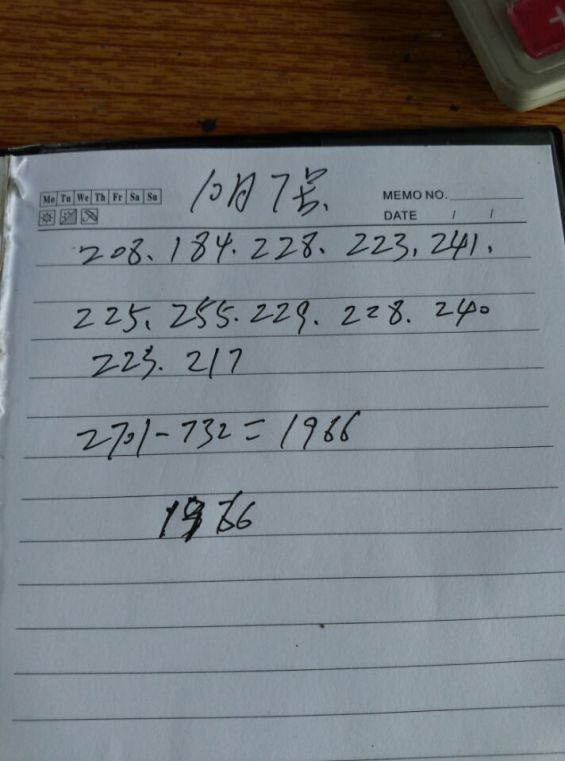 Mo Tu We Th Fr Sa Su
10月7号
MEMO NO.
DATE / /
208、184.228.223,241,
225、255.229.228.240
223.217
2701-732=1966
1966